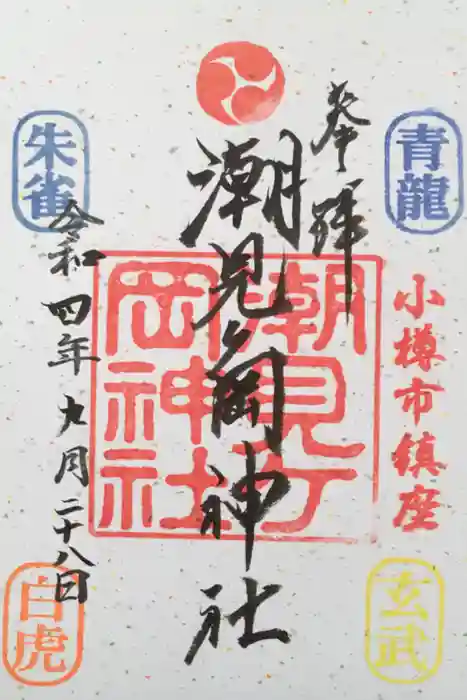 奉拝
潮見ヶ岡神社
令和四年九月二十八日
潮見ヶ
岡神社
小樽市鎮座
青龍
朱雀
玄武
白虎